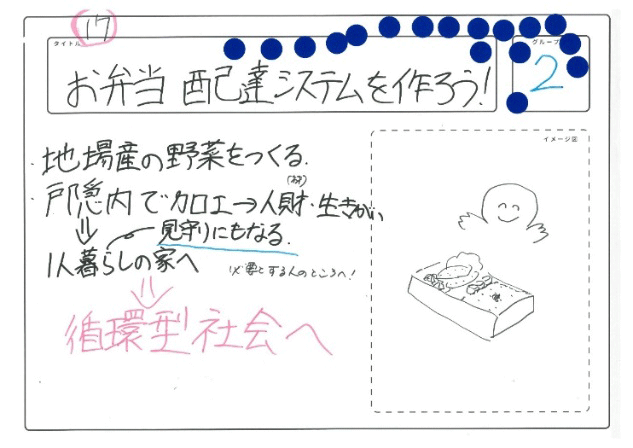 17
タイトル
お弁当 配達システムを作ろう!
グループ
2
地場産の野菜をつくる.
イメージ図
戸隠内で加工→人財・生きがい
(材)
⇓ 見守りにもなる.
1人暮らしの家へ
必要とする人のところへ!
⇓
循環型社会へ